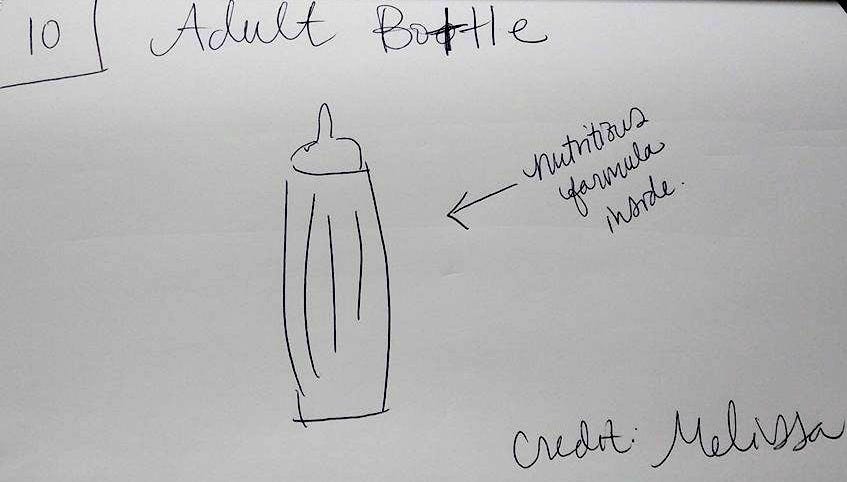 10
Adult Bottle
nutritious
formula
inside.
Credit: Melissa